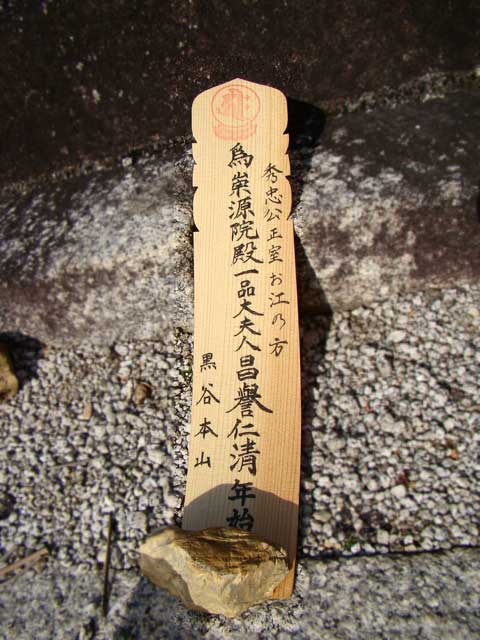 秀忠公正室お江の方
為崇源院殿一品大夫人昌譽仁清年始
黒谷本山